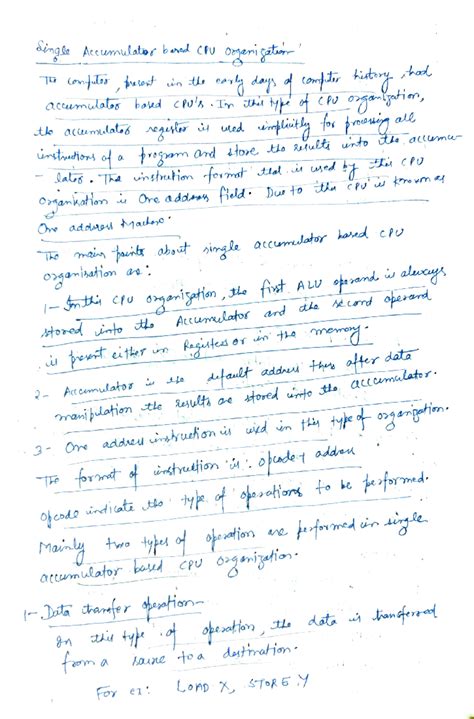 Single Accumulator based CPU organization
The computer, present in the early days of computer history, had
accumulator based CPU's. In this type of CPU organization,
the accumulator register is used implicitly for processing all
instructions of a program and store the results into the accumu-
-lator. The instruction format that is used by this CPU
organisation is One address field. Due to this CPU is known as
One address Machine.
The main points about single accumulator based CPU
organisation are:
1- In this CPU organization, the first ALU operand is always
stored into the Accumulator and the second operand
is present either in Registers or in the memory.
2- Accumulator is the default address thus after data
manipulation the results are stored into the accumulator.
3- One address instruction is used in this type of organization.
The format of instruction is: opcode + address
opcode indicate the type of operations to be performed.
Mainly two types of operation are performed in single
accumulator based CPU organization.
1- Data transfer operation-
In this type of operation, the data is transferred
from a source to a destination.
For ex: LOAD X, STORE Y